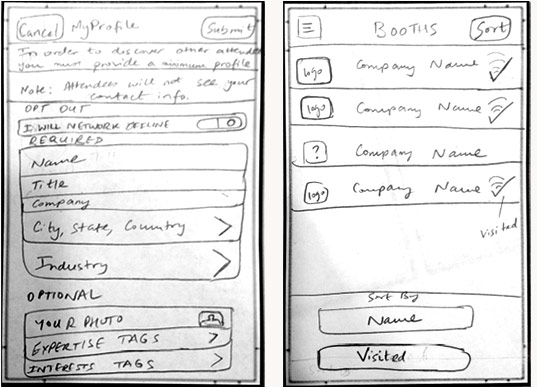 Cancel MyProfile Submit
In order to discover other attendees
you must provide a minimum profile
Note: Attendees will not see your
contact info.
OPT OUT
I WILL NETWORK OFFLINE
REQUIRED
Name
Title
Company
City, State, Country
Industry
OPTIONAL
YOUR PHOTO
EXPERTISE TAGS
INTERESTS TAGS
BOOTHS Sort
logo Company Name
logo Company Name
? Company Name
logo Company Name
Visited
Sort By
Name
Visited